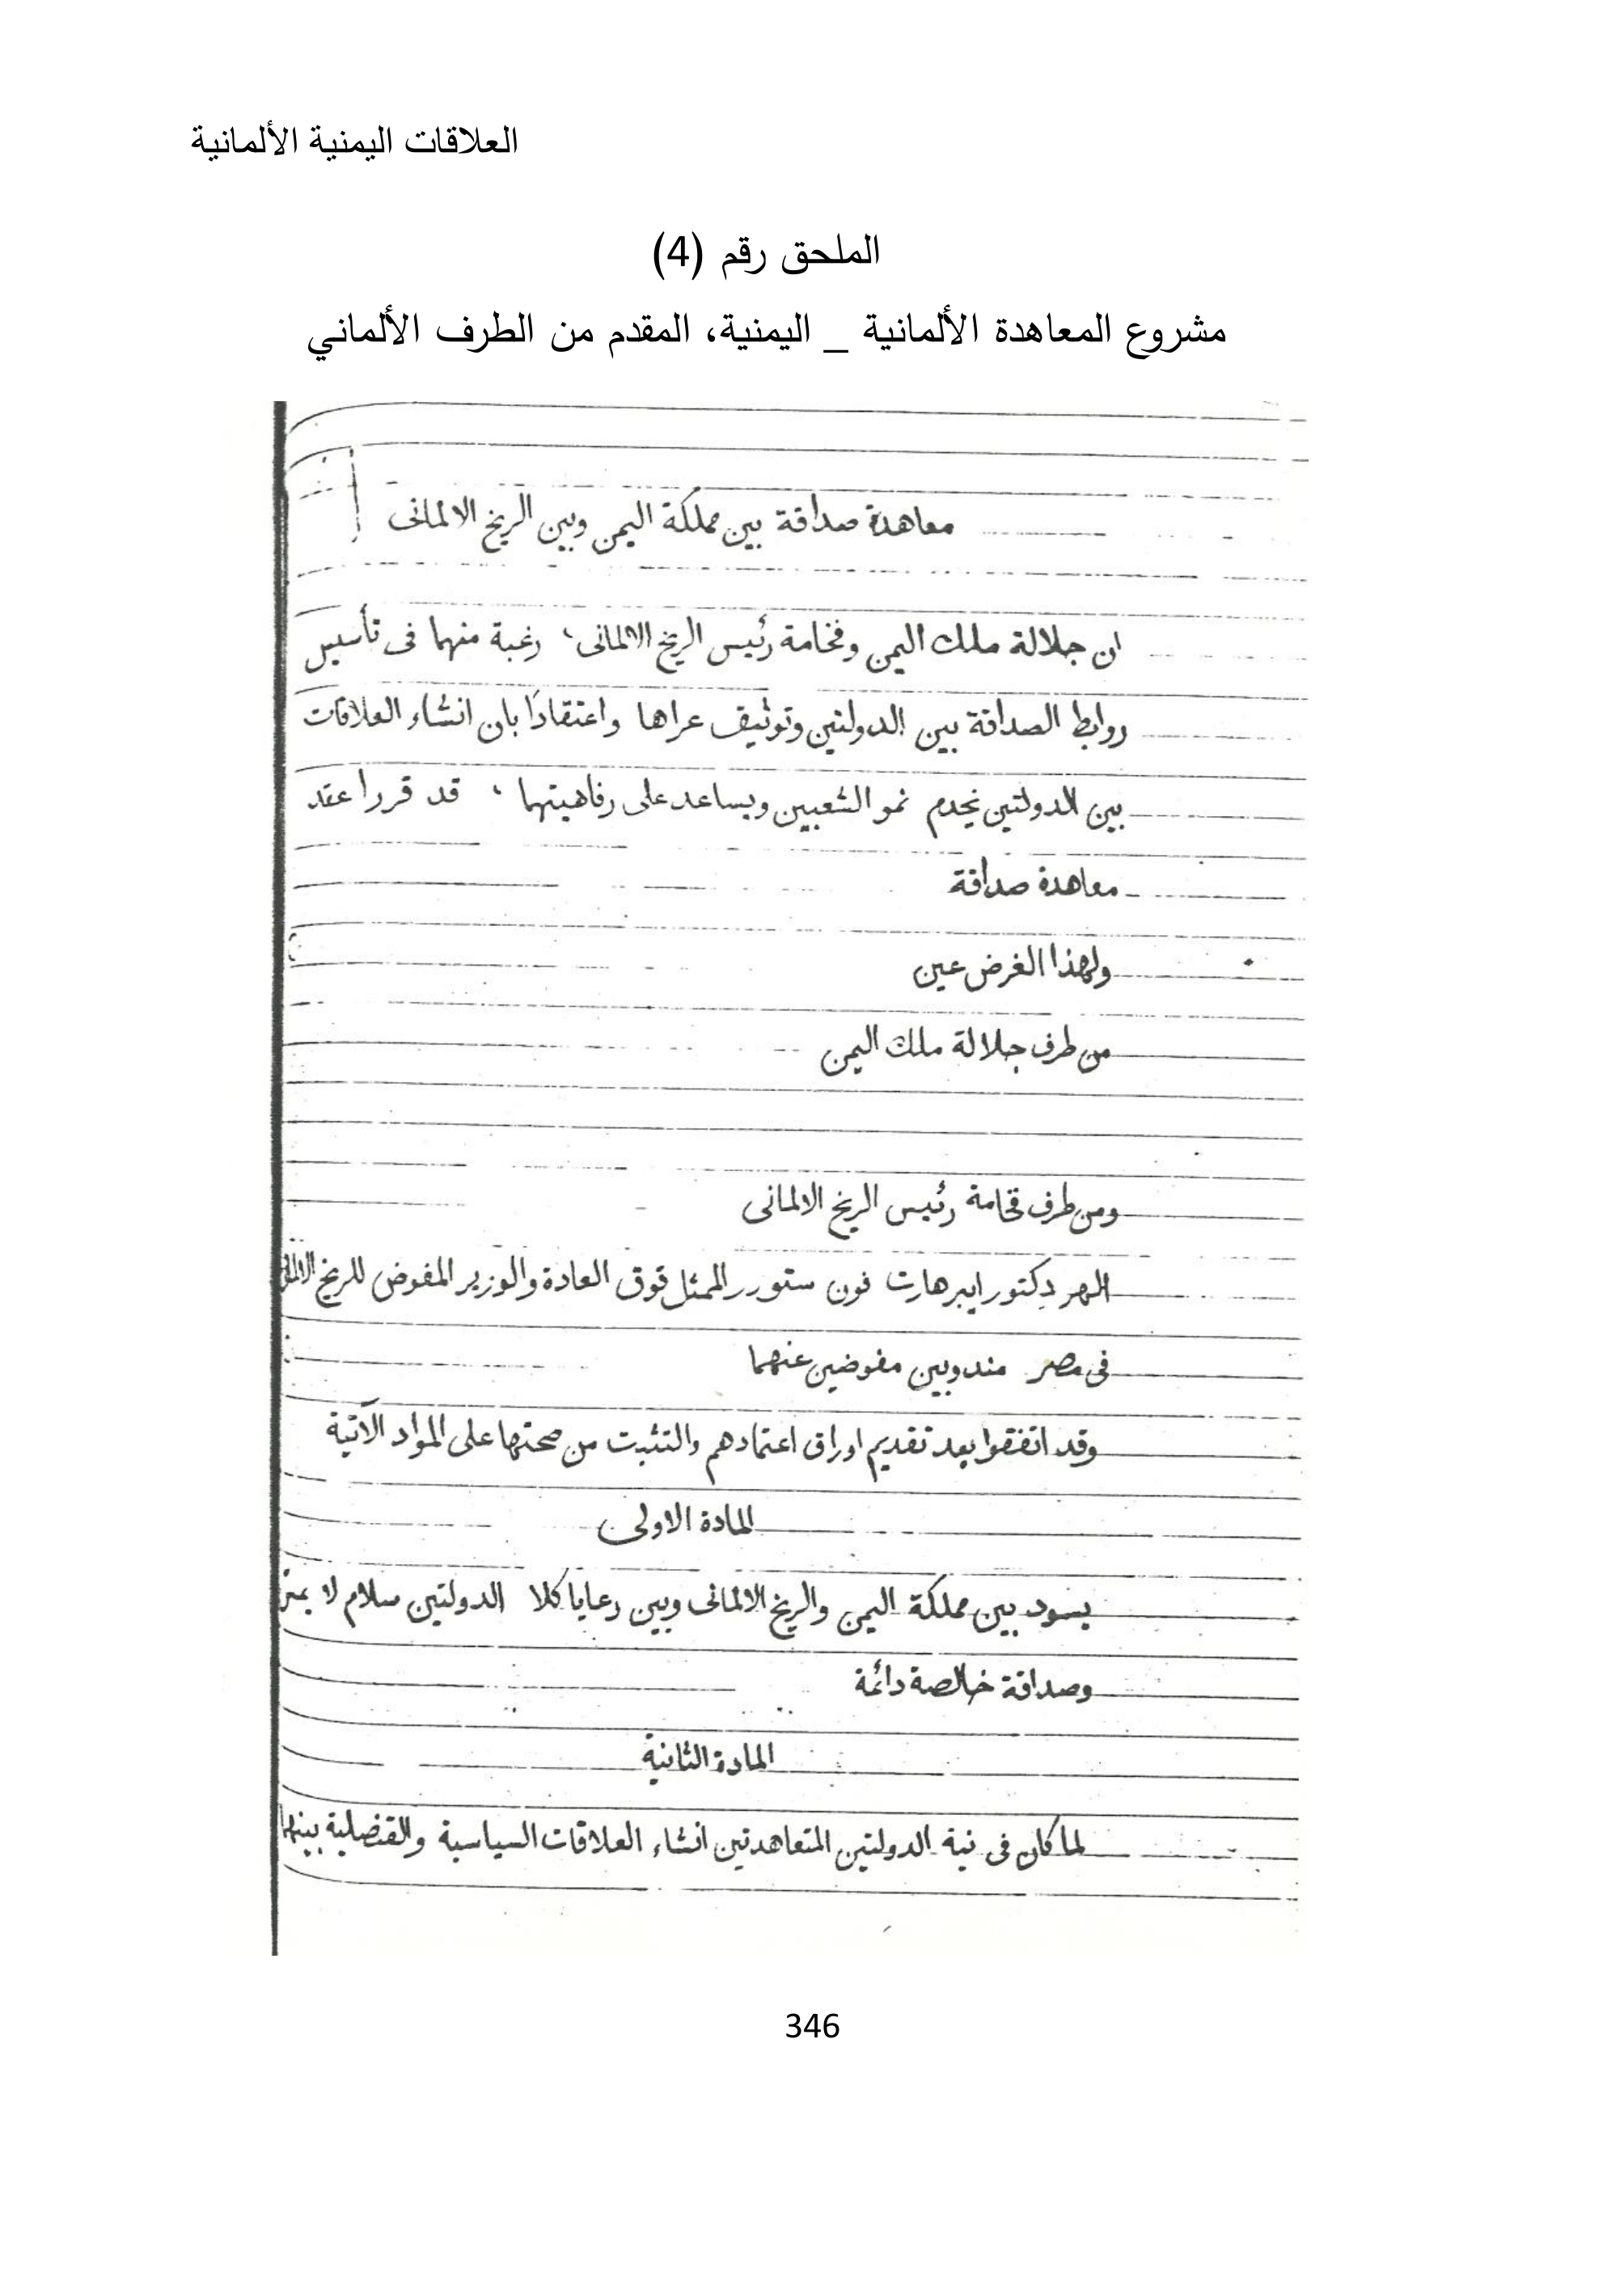 العلاقات اليمنية الألمانية
الملحق رقم (4)
مشروع المعاهدة الألمانية _ اليمنية، المقدم من الطرف الألماني
معاهدة صداقة بين مملكة اليمن وبين الريخ الالمانى
ان جلالة ملك اليمن وفخامة رئيس الريخ الالمانى، رغبة منهما فى تأسيس
روابط الصداقة بين الدولتين وتوثيق عراها واعتقادًا بان انشاء العلاقات
بين الدولتين يخدم نمو الشعبين ويساعد على رفاهيتهما، قد قررا عقد
معاهدة صداقة
ولهذا الغرض عين
من طرف جلالة ملك اليمن
ومن طرف فخامة رئيس الريخ الالمانى
الهر دكتور ايبرهارت فون ستورر الممثل فوق العادة والوزير المفوض للريخ الالمانى
فى مصر مندوبين مفوضين عنهما
وقد اتفقوا بعد تقديم اوراق اعتمادهم والتثبت من صحتها على المواد الآتية
المادة الاولى
يسود بين مملكة اليمن والريخ الالمانى وبين رعايا كلا الدولتين سلام لا
وصداقة خالصة دائمة
المادة الثانية
لما كان فى نية الدولتين المتعاهدتين انشاء العلاقات السياسية والقنصلية بينهما
346